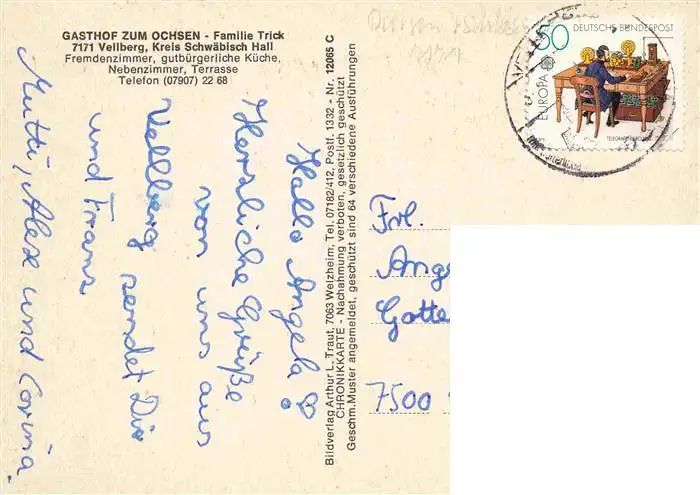 GASTHOF ZUM OCHSEN - Familie Trick
7171 Vellberg, Kreis Schwäbisch Hall
Fremdenzimmer, gutbürgerliche Küche,
Nebenzimmer, Terrasse
Telefon (07907) 22 68
Hallo Angela!
Herzliche Grüße
von uns aus
Vellberg sendet Dir
und Franz
Mutti, Alex und Corina.
Bildverlag Arthur L. Traut, 7063 Welzheim, Tel. 07182/412, Postf. 1332 - Nr. 12065 C
CHRONIKKARTE - Nachahmung verboten, gesetzlich geschützt
Gesch. Muster angemeldet, geschützt sind 64 verschiedene Ausführungen
60
DEUTSCHE BUNDESPOST
EUROPA
Frl.
Ang
Gotte
7500